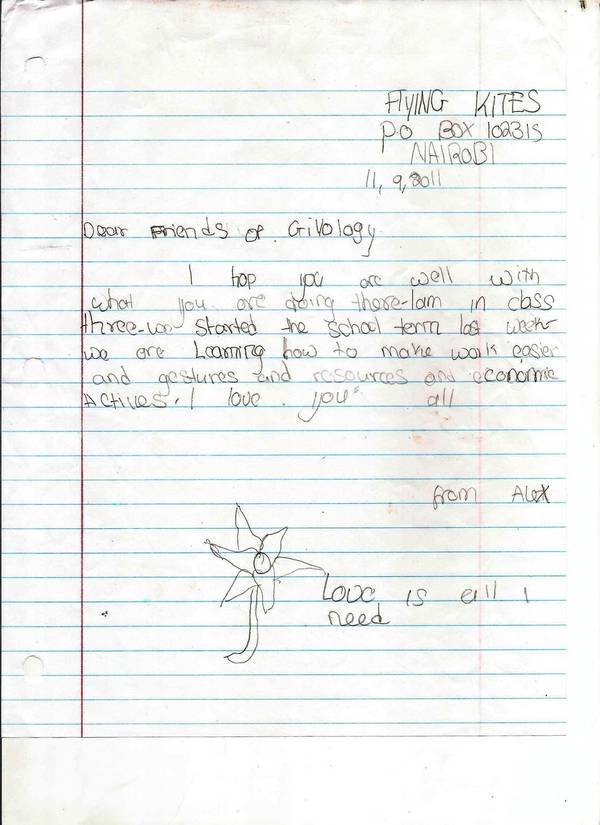 FlYING KITES
PO BOX 102315
NAIROBI
11, 9, 2011
Dear Friends of Givology
I hop you are well with
what you are doing there-Iam in class
three-we started the school term last week-
we are Learning how to make work easier
and gestures and resources and economic
Actives. I love. you all
from Alex
Love is all I
need